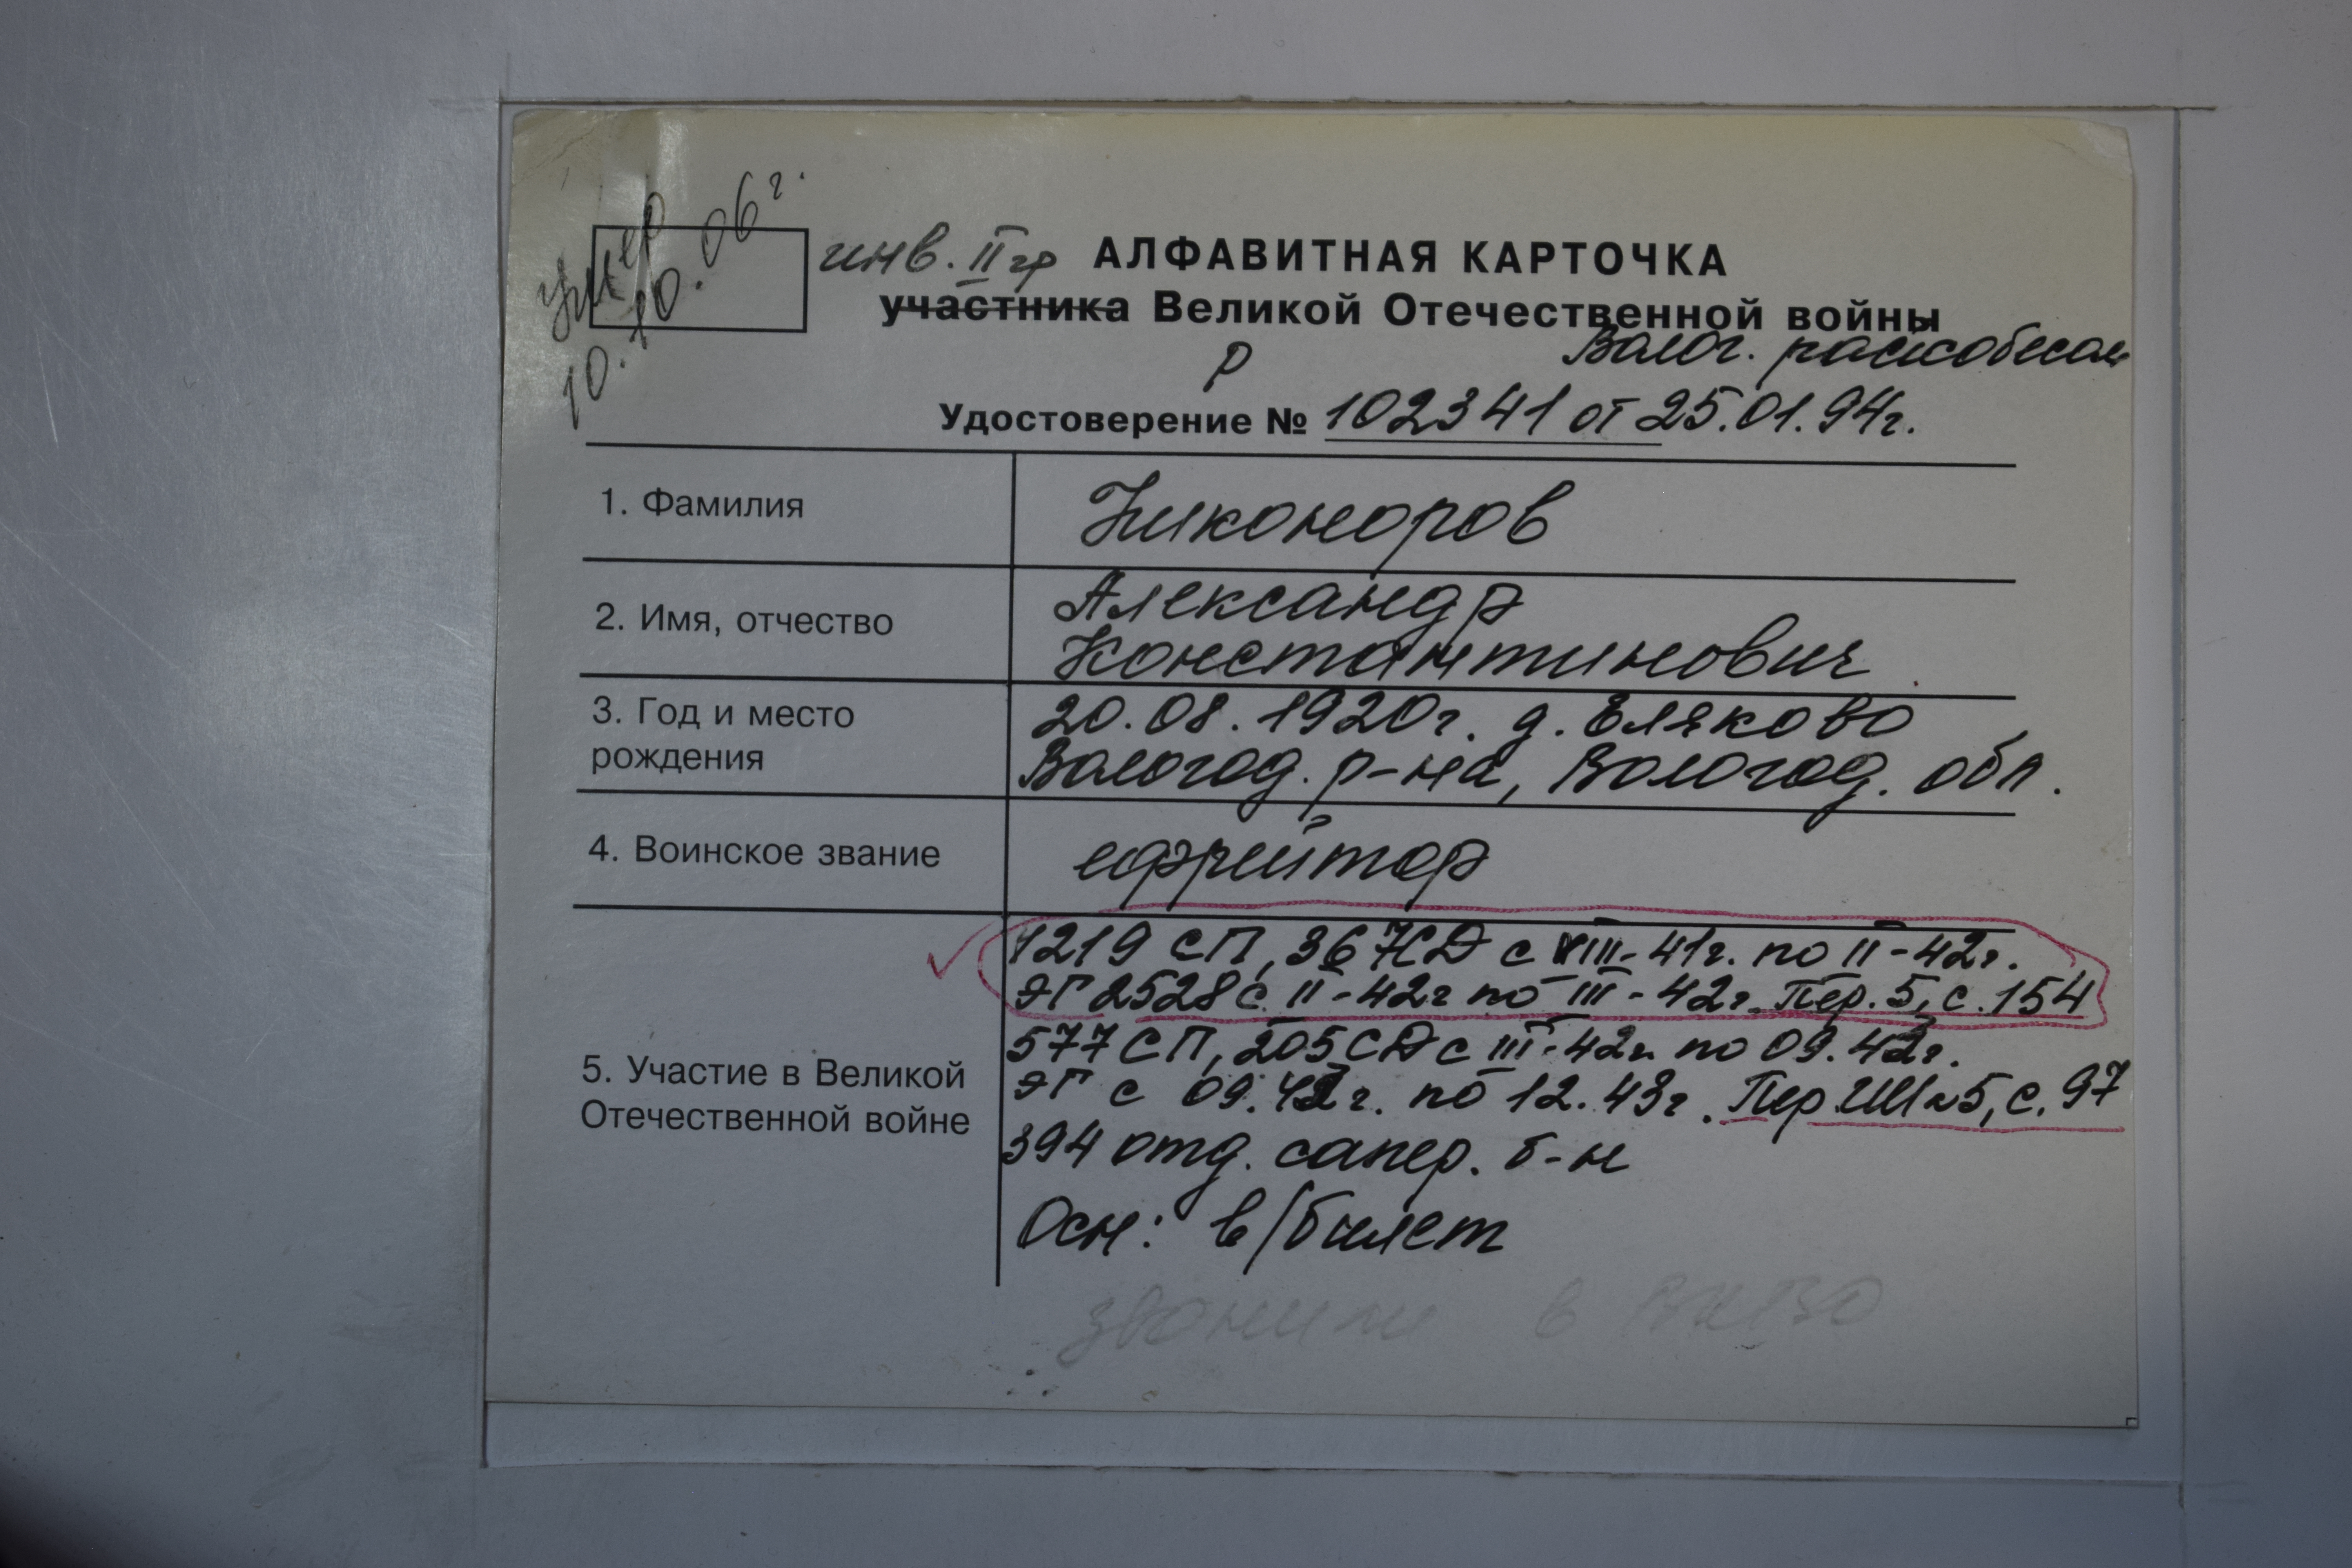 умер
10.10.06г.
инв. II гр АЛФАВИТНАЯ КАРТОЧКА
участника Великой Отечественной войны
Р Волог. райсобесом
Удостоверение № 102341 от 25.01.94г.
1. Фамилия Никоноров
2. Имя, отчество Александр
Константинович
3. Год и место 20.08.1920г. д. Еляково
рождения Вологод. р-на, Вологод. обл.
4. Воинское звание ефрейтор
1219 СП, 367СД с VIII-41г. по II-42г.
ЭГ 2528 с II-42г по III-42г. Пер. 5, с. 154
577 СП, 205 СД с III-42г. по 09.42г.
5. Участие в Великой ЭГ с 09.42г. по 12.43г. Пер. ШМ 5, с. 97
Отечественной войне 394 отд. сапер. б-н
Осн: в/билет
звонили в